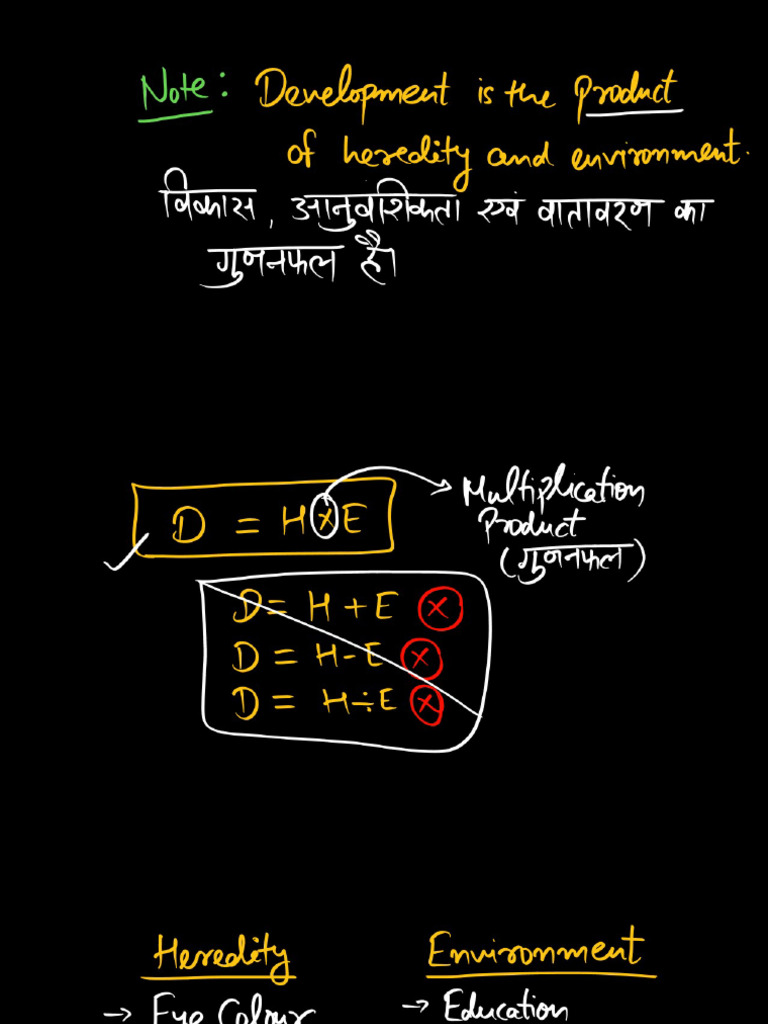 Note: Development is the product
of heredity and environment.
विकास, आनुवंशिकता एवं वातावरण का
गुणनफल है।
D = H × E → Multiplication
Product
(गुणनफल)
D = H + E ×
D = H - E ×
D = H ÷ E ×
Heredity Environment
→ Eye Colour → Education